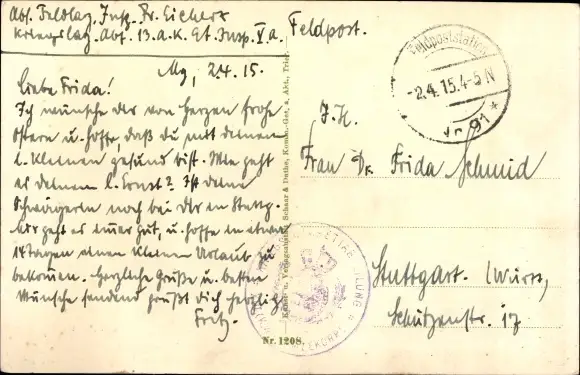 Abs. Feldlaz. Insp. Fr. Eichert
Kriegslaz. Abt. 13. A.K. Et. Insp. V a.
Feldpost.
Feldpoststation
-2.4.15.4-5 N
Nr 91 *
2.4.15.
Liebe Frida!
Ich wünsche dir von Herzen frohe
Ostern u. hoffe, daß du mit deinen
l. Kleinen gesund bist. Wie geht
es deinem l. Ernst? Ist deine
Schwägerin noch bei dir in Stuttg.
Mir geht es immer gut, u. hoffe in etwa
14 tagen einen kleinen Urlaub zu
bekommen. Herzliche Grüße u. besten
Wünsche sendend grüßt dich herzlich
Fritz.
Frau Dr. Frida Schmid
Stuttgart. (Württ.)
Schützenstr. 17
Kunst- u. Verlagsanstalt Schaar & Dathe, Komm.-Ges. a. Akt., Trier.
Nr. 1208.